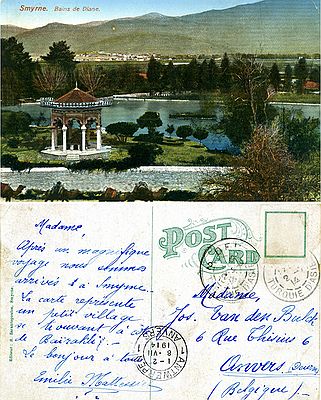 Smyrne. Bains de Diane.
POST CARD
Madame,
Après un magnifique
voyage nous sommes
arrivés à Smyrne.
La carte représente
un petit village
se trouvant à
de
Le bonjour à tous
Emilie
Madame,
Jos. Van den
6 Rue Thisius 6
Anvers
(Belgique)
ANTWERPEN
1-2
8 VII
1914
ANVERS